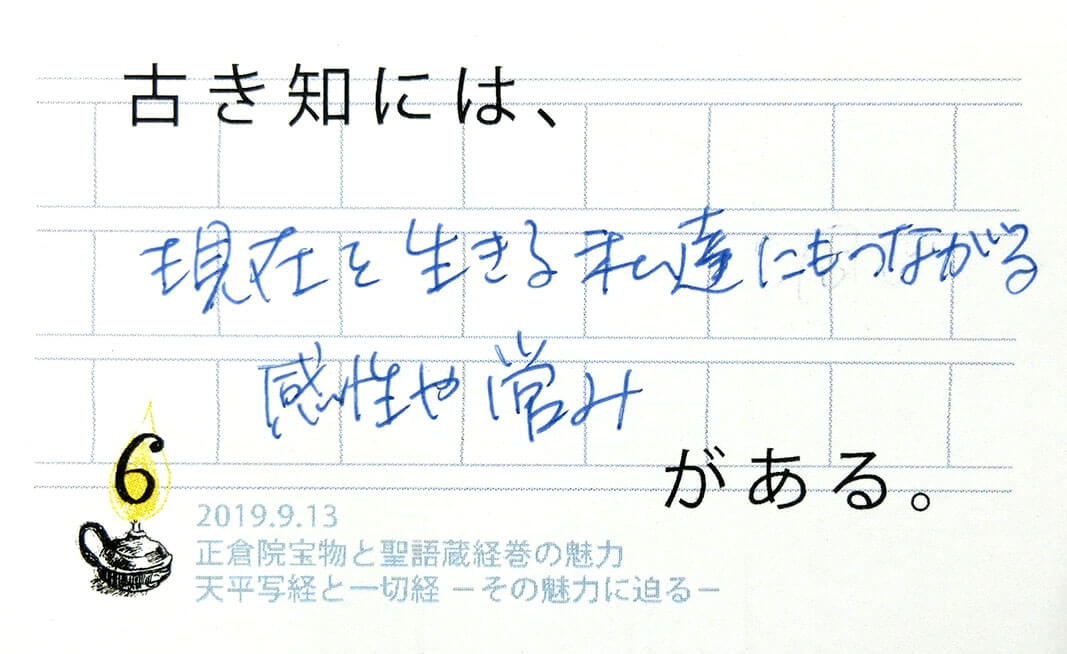 古き知には、
現在を生きる私達にもつながる
感性や営み
がある。
6
2019.9.13
正倉院宝物と聖語蔵経巻の魅力
天平写経と一切経 －その魅力に迫る－